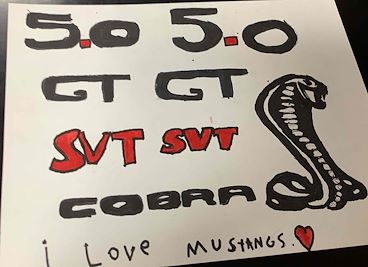 5.0 5.0
GT GT
SVT SVT
COBRA
i Love MUSTANGS.